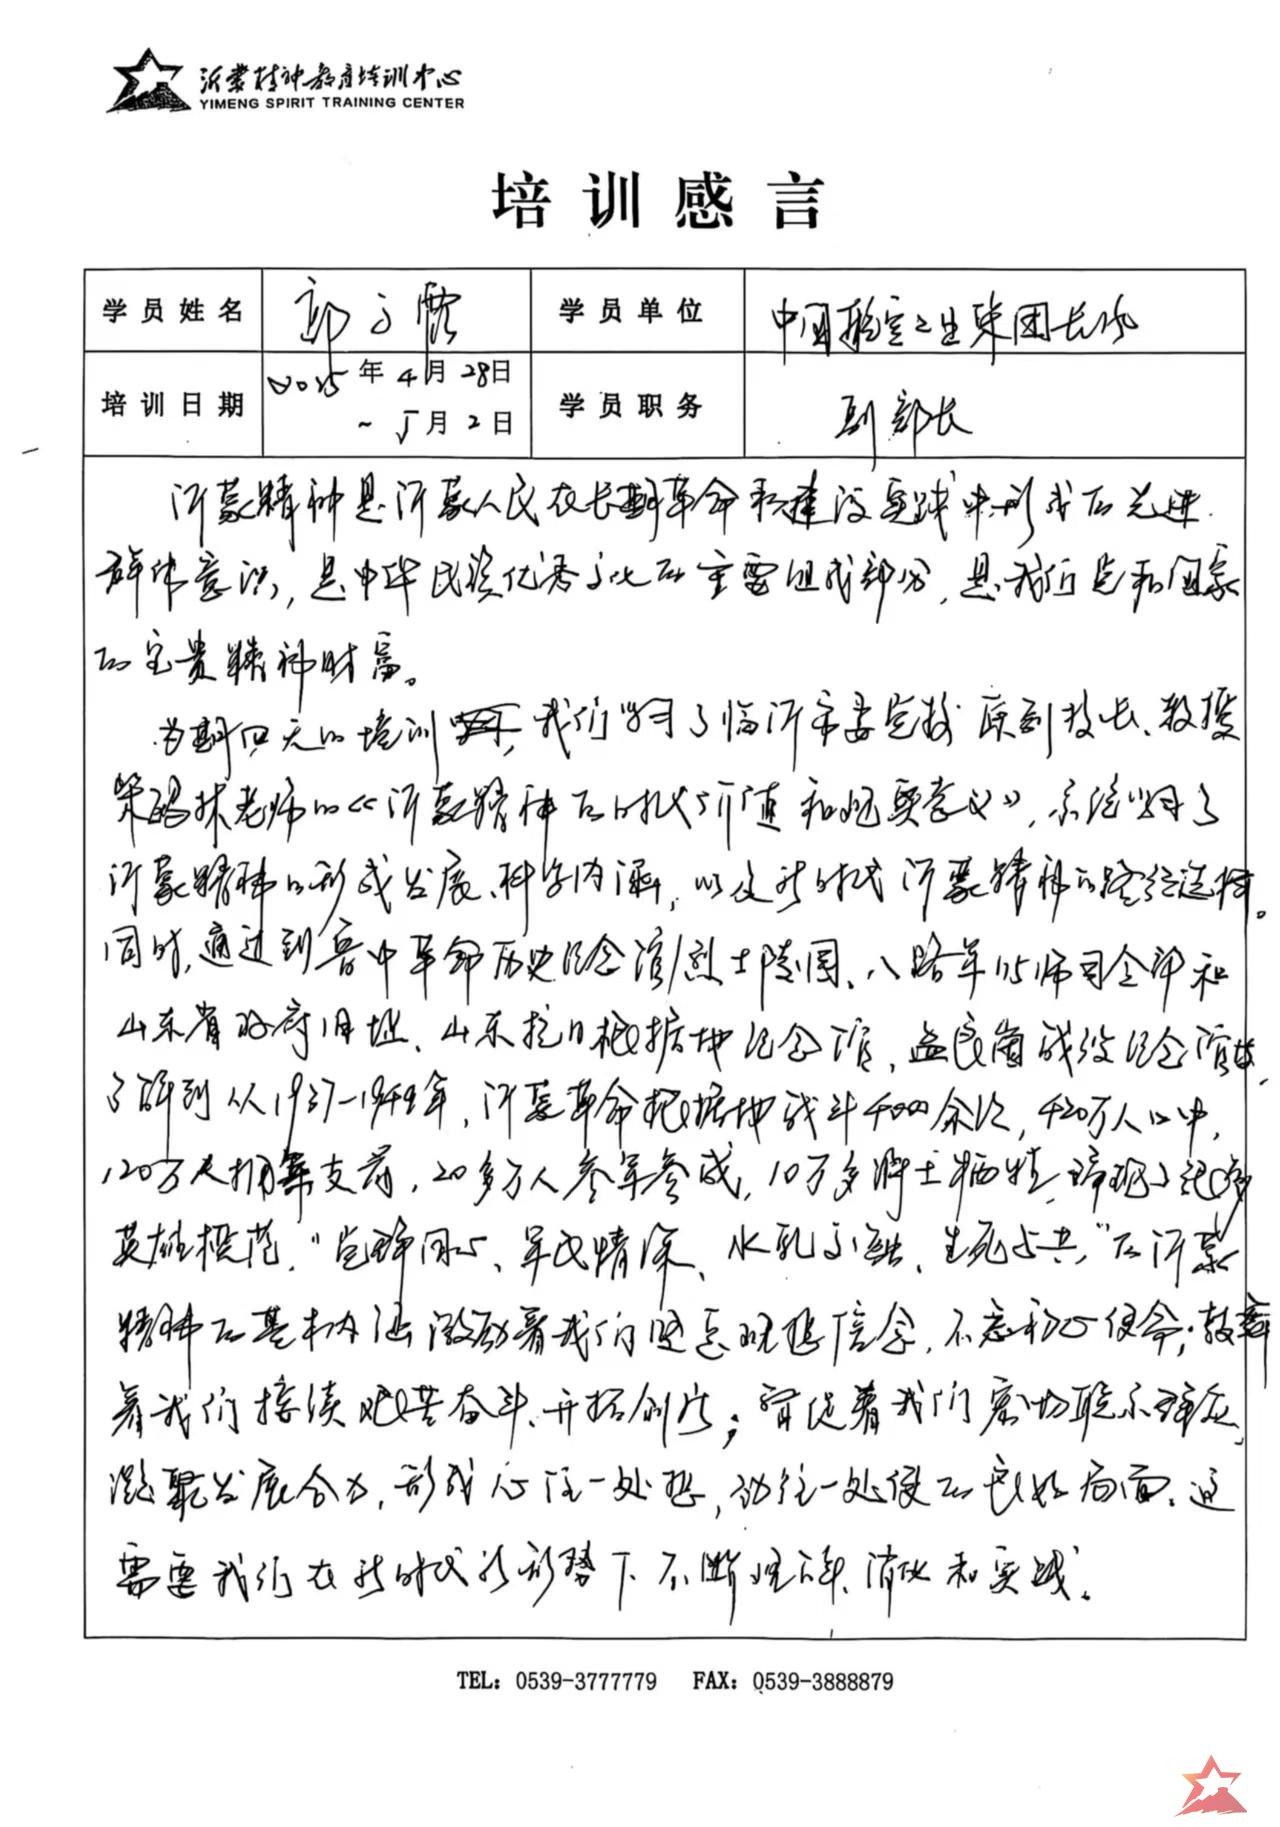 沂蒙精神教育培训中心
YIMENG SPIRIT TRAINING CENTER
培训感言
学员姓名 学员单位 中国航空工业集团
培训日期 2025年4月28日
~5月2日 学员职务 副部长
沂蒙精神是沂蒙人民在长期革命和建设实践中形成的先进
群体意识，是中华民族优秀文化的重要组成部分，是我们党和国家
的宝贵精神财富。
为期四天的培训，我们学习了临沂市委党校原副校长、教授
老师的《沂蒙精神的时代价值和现实意义》，系统学习了
沂蒙精神的形成发展、科学内涵，以及新时代沂蒙精神的路径选择。
同时，通过到革命历史纪念馆/烈士陵园、八路军115师司令部和
山东省政府旧址、山东抗日根据地纪念馆，孟良崮战役纪念馆，
了解到从1937-1949年，沂蒙革命根据地战斗4000余次，420万人口中，
120万人拥军支前，20多万人参军参战，10万多将士牺牲，涌现了
英雄模范，“党群同心、军民情深、水乳交融、生死与共”的沂蒙
精神的基本内涵激励着我们坚定理想信念，不忘初心使命；鼓舞
着我们接续艰苦奋斗、开拓创新；督促着我们密切联系群众，
凝聚发展合力，形成心往一处想，劲往一处使的良好局面。这
需要我们在新时代新形势下不断理解、消化和实践。
TEL: 0539-3777779 FAX: 0539-3888879